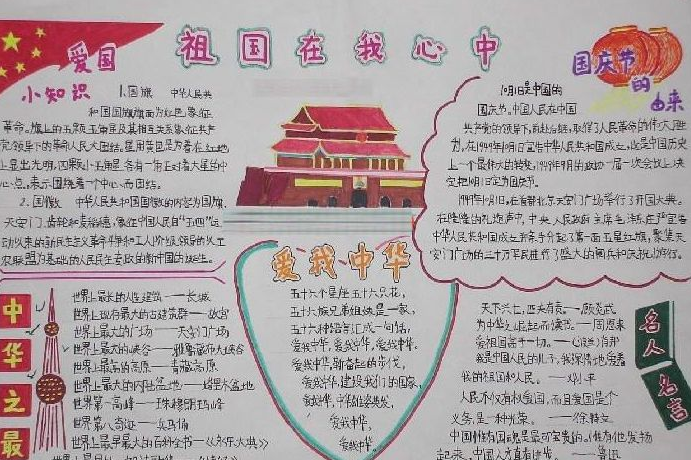 祖国在我心中
爱国
小知识
1.国旗 中华人民共
和国国旗旗面为红色,象征
革命。旗上的五颗五角星及其相互关系象征共产
党领导下的革命人民大团结。星用黄色是为着在红地
上显出光明,四颗小五角星各有一角正对着大星的中
心点,表示围绕着一个中心而团结。
2.国徽 中华人民共和国国徽的内容为国旗、
天安门、齿轮和麦稻穗,象征中国人民自“五四”运
动以来的新民主主义革命斗争和工人阶级领导的以工
农联盟为基础的人民民主专政的新中国的诞生。
国庆节
的
由来
10月1日是中国的
国庆节。中国人民在中国
共产党的领导下,前赴后继,取得了人民革命的伟大胜
利,在1949年10月1日宣告中华人民共和国成立,这是中国历史
上一个最伟大的转变,1949年9月的政协一届一次会议上决
定把10月1日定为国庆节。
1949年10月1日,在首都北京天安门广场举行了开国大典。
在隆隆的礼炮声中,中央人民政府主席毛泽东庄严宣布
中华人民共和国成立并亲手升起了第一面五星红旗,聚集天
安门广场的三十万军民进行了盛大的阅兵和庆祝游行。
中华之最
世界上最长的人造建筑——长城
世界上现存最大的古建筑群——故宫
世界上最大的广场——天安门广场
世界上最大的峡谷——雅鲁藏布大峡谷
世界上最高的高原——青藏高原
世界上最大的内陆盆地——塔里木盆地
世界第一高峰——珠穆朗玛峰
世界八奇迹——兵马俑
世界上最早最大的百科全书——《永乐大典》
爱我中华
五十六个星座五十六只花,
五十六族兄弟姐妹是一家,
五十六种语言汇成一句话,
爱我中华,爱我中华,爱我中华。
爱我中华,健奋起的步伐,
爱我中华,建设我们的国家,
爱我中华,中华雄姿英发,
爱我中华,
爱我中华。
名人
名言
天下兴亡,匹夫有责。——顾炎武
为中华之崛起而读书。——周恩来
爱祖国高于一切。——肖邦
我是中国人民的儿子,我深情地爱着
我的祖国和人民。——邓小平
人民不仅有权爱国,而且爱国是个
义务,是一种光荣。——徐特立